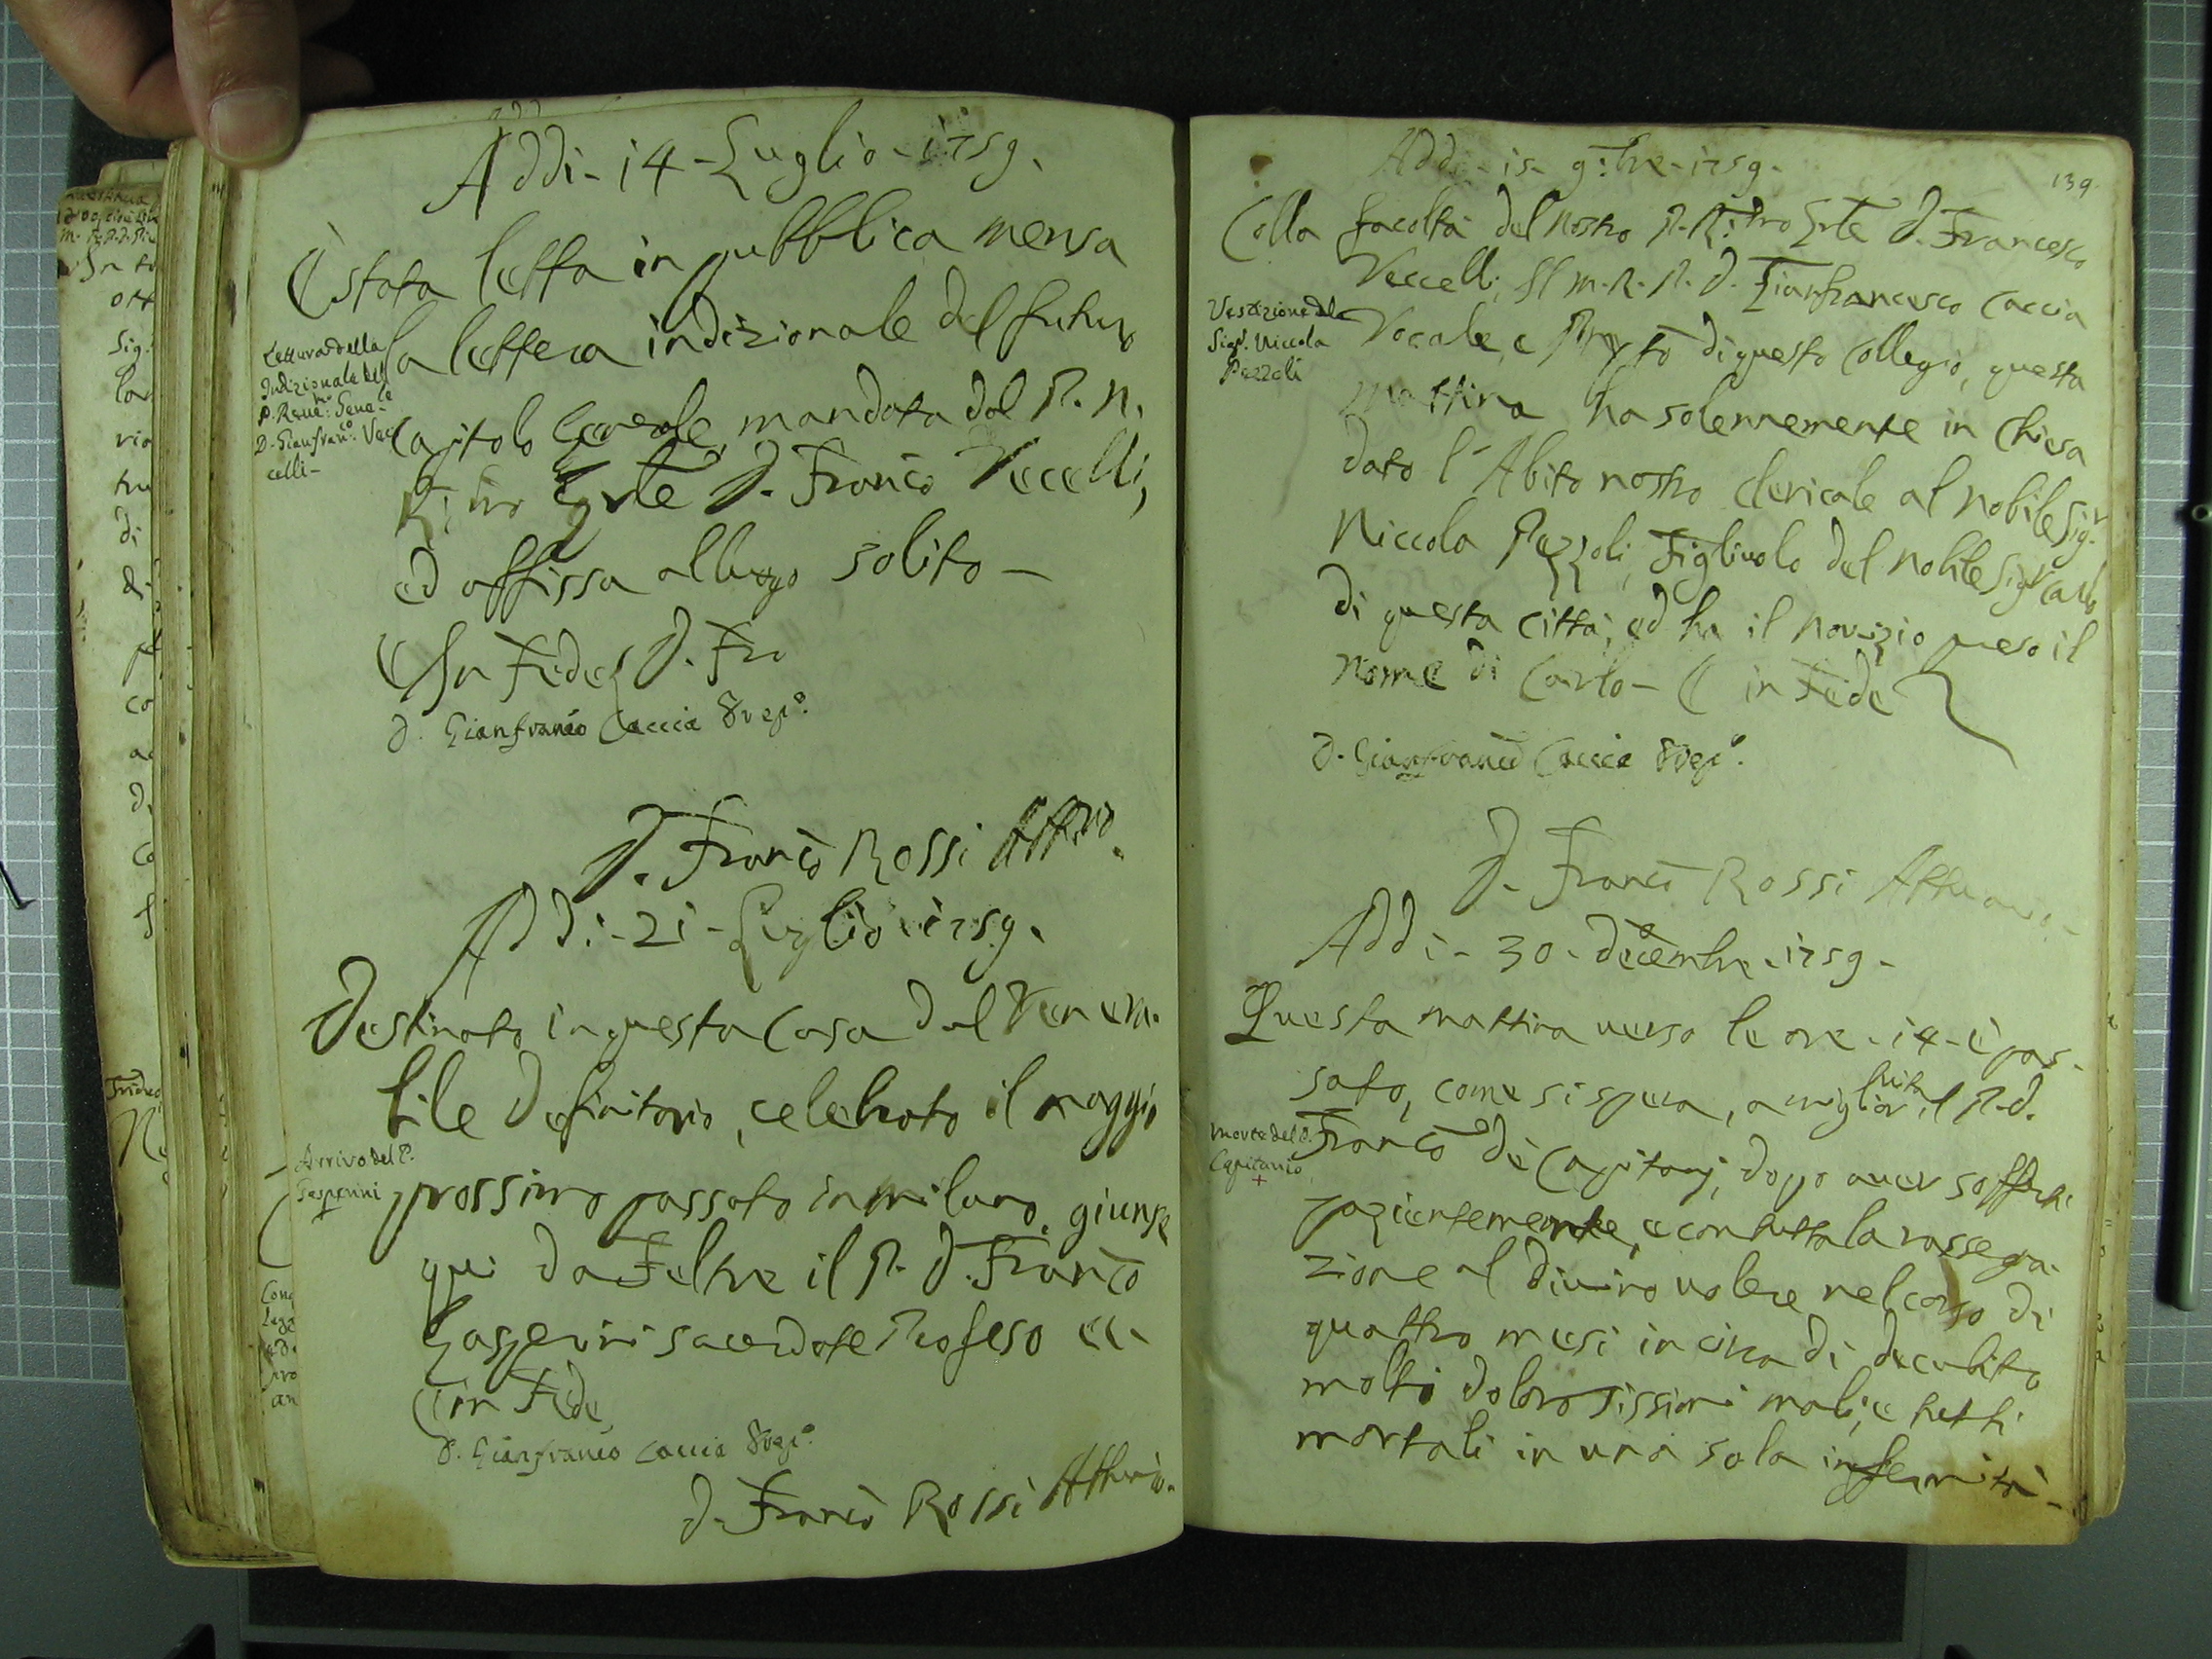 Addi - 14 - Luglio - 1759.
È stata letta in pubblica mensa
la lettera indizionale del futuro
Capitolo Generale, mandata dal P. N.
D. Franco Vecelli,
ed affissa al luogo solito -
In Fede D. Fra
D. Gianfranco Caccia Prepo.
Lettura della
Indizionale del
P. Reve: Gene:le
D. Gianfranco. Vec
celli -
D. Franco Rossi Attrio.
Addi - 21 - Luglio 1759.
Destinato in questa Casa dal Venera-
bile Definitorio, celebrato il maggio
prossimo passato in milano, giunse
qui da Feltre il P. D. Franco
Gasperini sacerdote Professo
in Fede
D. Gianfranco Caccia Prepo.
Arrivo del P.
Gasperini
D. Franco Rossi Attrio.
139.
Addi - 15 - 9:bre - 1759 -
Colla facoltà del nostro P. D. Francesco
Veccelli, Il M. R. P. D. Gianfrancesco Caccia
Vocale, e Prepto di questo Collegio, questa
mattina ha solennemente in Chiesa
dato l'Abito nostro clericale al nobile Sigr.
Niccola Pezzoli, Figliuolo del nobile Sigr Carlo
di questa città, ed ha il novizio preso il
nome di Carlo - in Fede
D. Gianfranco Caccia Prepo.
Vestizione del
Sigr. Niccola
Pezzoli
D. Franco Rossi Attuario.
Addi - 30 - Dicembre - 1759 -
Questa mattina verso le ore - 14 - è pas-
sato, come si spera, a miglior vita il P. D.
Franco de Capitanj, doppo aver sofferti
pazientemente, e con tutta la rassegna-
zione al divino volere nel corso di
quattro mesi in circa di decubito
molti dolorosissimi mali, e tutti
mortali in una sola infermità -
Morte del P.
Capitanio
+